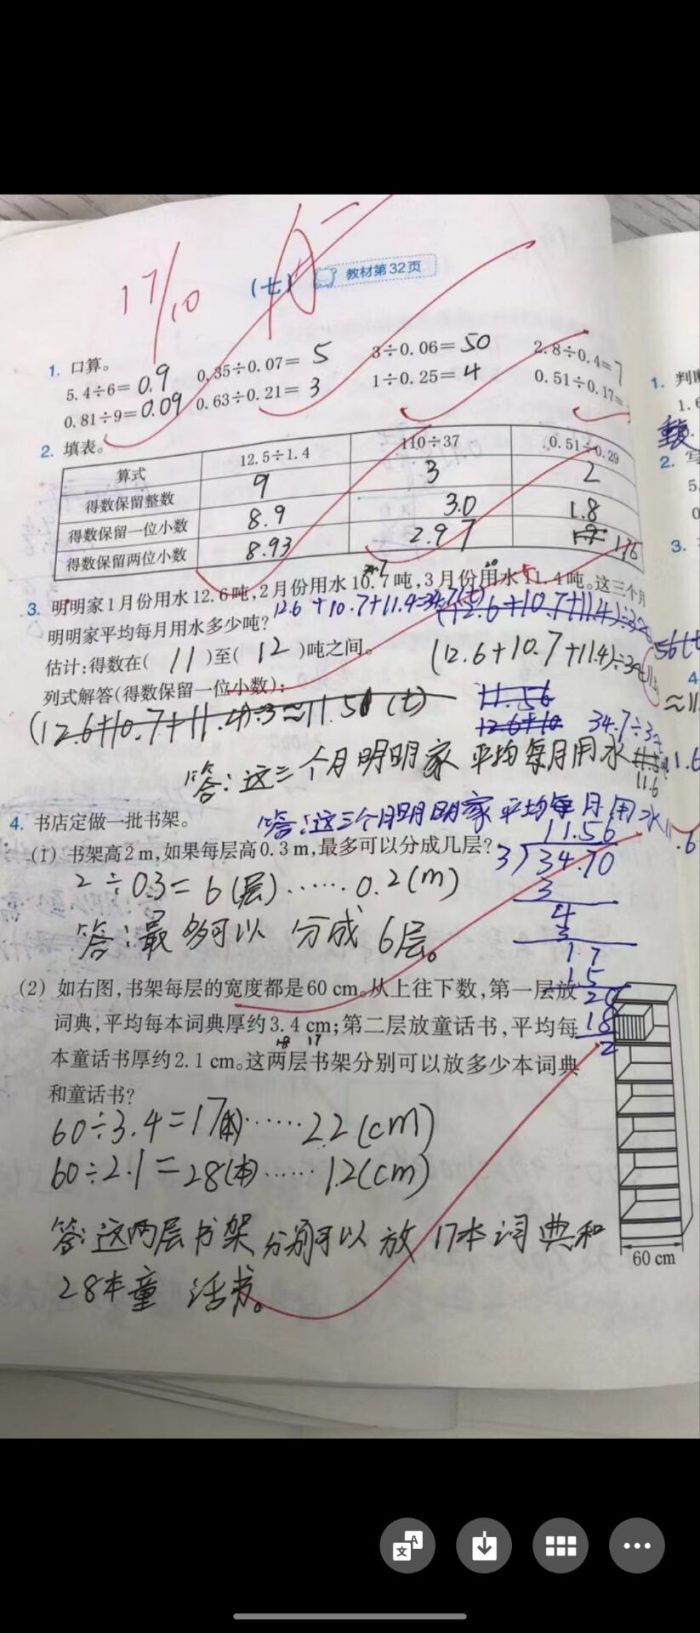 17/10 (七) 教材第32页
1. 口算。
5.4÷6=0.9 0.35÷0.07=5 3÷0.06=50 2.8÷0.4=7
0.81÷9=0.09 0.63÷0.21=3 1÷0.25=4 0.51÷0.17=
2. 填表。
算式 12.5÷1.4 110÷37 0.51÷0.29
得数保留整数 9 3 2
得数保留一位小数 8.9 3.0 1.8
得数保留两位小数 8.93 2.97 1.76
3. 明明家1月份用水12.6吨,2月份用水10.7吨,3月份用水11.4吨。这三个月
明明家平均每月用水多少吨? 12.6+10.7+11.4=34.7(t)
估计:得数在( 11 )至( 12 )吨之间。 (12.6+10.7+11.4)÷3
列式解答(得数保留一位小数):
(12.6+10.7+11.4)÷3≈11.56(t) 11.56
12.6+10 34.7÷3
答:这三个月明明家平均每月用水
11.6
4. 书店定做一批书架。 答:这三个月明明家平均每月用水11.6
(1) 书架高2 m,如果每层高0.3 m,最多可以分成几层?
2÷0.3=6(层)……0.2(m)
答:最多可以分成6层。
11.56
3 34.70
3
4
3
1.7
15
20
18
2
(2) 如右图,书架每层的宽度都是60 cm。从上往下数,第一层放
词典,平均每本词典厚约3.4 cm;第二层放童话书,平均每
本童话书厚约2.1 cm。这两层书架分别可以放多少本词典
和童话书?
60÷3.4=17(本)……2.2(cm)
60÷2.1=28(本)……1.2(cm)
答:这两层书架分别可以放17本词典和
28本童话书。
60 cm
1. 判断
2. 写
3.
4